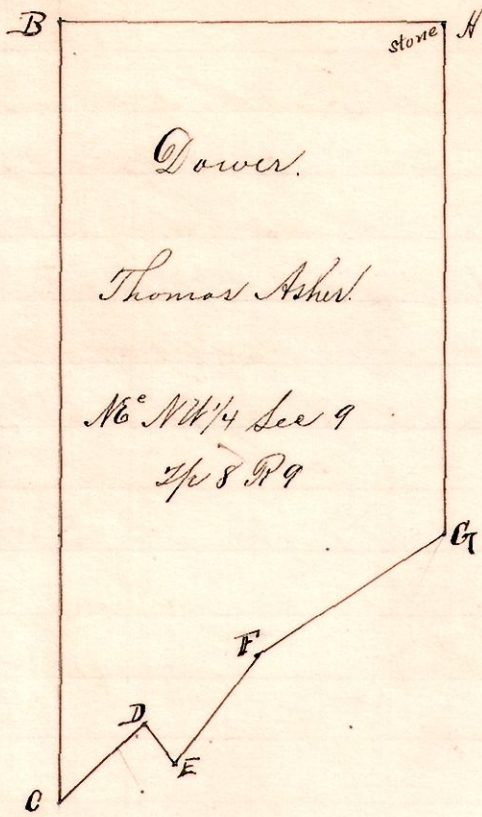 B
stone H
Dower.
Thomas Asher.
NEc NW1/4 Sec 9
Tp 8 R 9
G
F
D
E
C